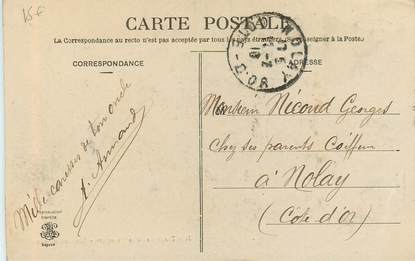 15 F
CARTE POSTALE
La Correspondance au recto n'est pas acceptée par tous pays étrangers. (Se renseigner à la Poste.)
CORRESPONDANCE
ADRESSE
NOLAY
CÔTE-D'OR
Mille caresses de ton oncle
A. Armand
Monsieur Nicoud Georges
Chez ses parents Coiffeur
à Nolay
(Côte d'Or)